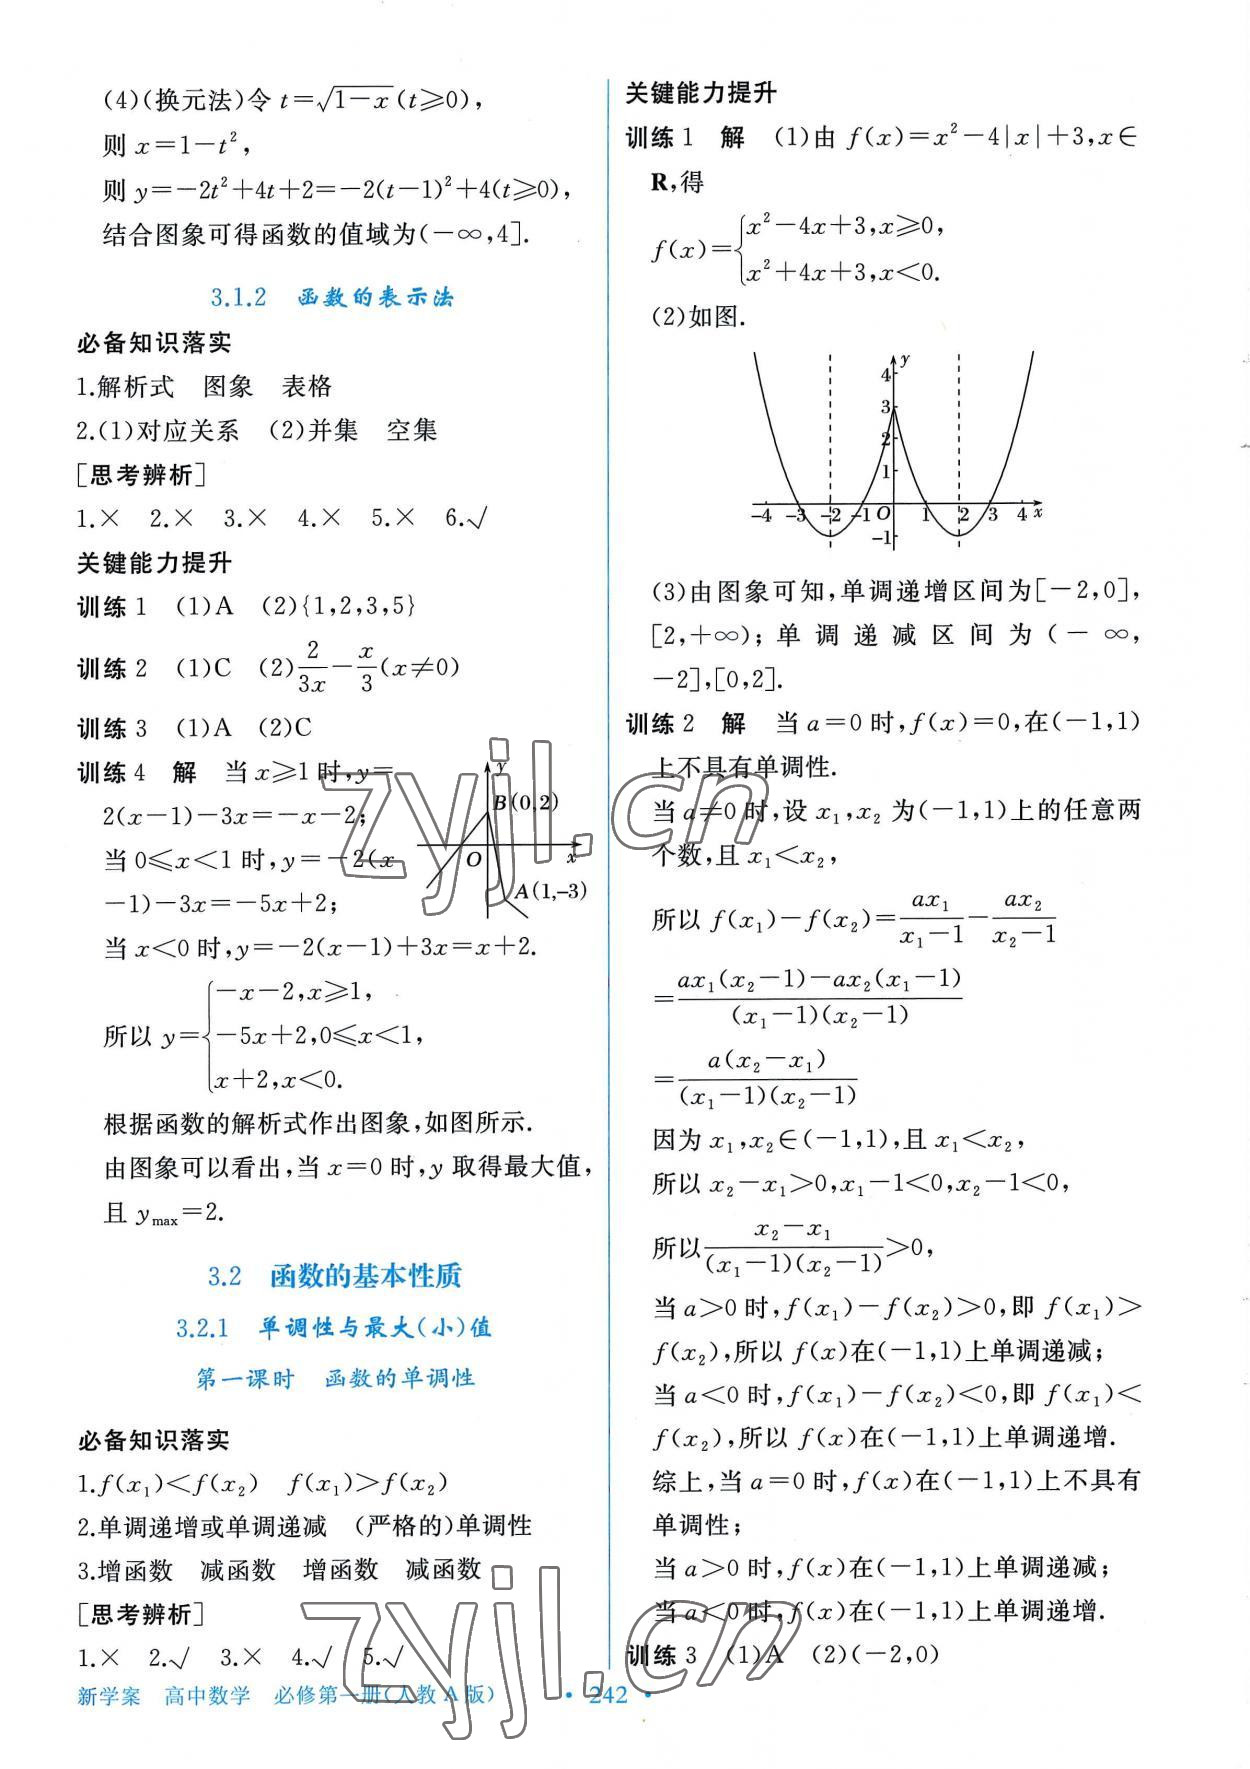 (4)(换元法)令 t=√(1-x)(t≥0),
则 x=1-t²,
则 y=-2t²+4t+2=-2(t-1)²+4(t≥0),
结合图象可得函数的值域为(-∞,4].
3.1.2 函数的表示法
必备知识落实
1.解析式 图象 表格
2.(1)对应关系 (2)并集 空集
[思考辨析]
1.× 2.× 3.× 4.× 5.× 6.√
关键能力提升
训练 1 (1)A (2){1,2,3,5}
训练 2 (1)C (2)2/(3x)-x/3(x≠0)
训练 3 (1)A (2)C
训练 4 解 当 x≥1 时,y=
2(x-1)-3x=-x-2;
当 0≤x<1 时,y=-2(x
-1)-3x=-5x+2;
y
B(0,2)
O
x
A(1,-3)
当 x<0 时,y=-2(x-1)+3x=x+2.
所以 y={-x-2,x≥1,
-5x+2,0≤x<1,
x+2,x<0.
根据函数的解析式作出图象,如图所示.
由图象可以看出,当 x=0 时,y 取得最大值,
且 y_max=2.
3.2 函数的基本性质
3.2.1 单调性与最大(小)值
第一课时 函数的单调性
必备知识落实
1.f(x₁)<f(x₂) f(x₁)>f(x₂)
2.单调递增或单调递减 (严格的)单调性
3.增函数 减函数 增函数 减函数
[思考辨析]
1.× 2.√ 3.× 4.√ 5.√
关键能力提升
训练 1 解 (1)由 f(x)=x²-4|x|+3,x∈
R,得
f(x)={x²-4x+3,x≥0,
x²+4x+3,x<0.
(2)如图.
y
4
3
2
1
-4 -3 -2 -1 O 1 2 3 4 x
-1
(3)由图象可知,单调递增区间为[-2,0],
[2,+∞);单调递减区间为(-∞,
-2],[0,2].
训练 2 解 当 a=0 时,f(x)=0,在(-1,1)
上不具有单调性.
当 a≠0 时,设 x₁,x₂ 为(-1,1)上的任意两
个数,且 x₁<x₂,
所以 f(x₁)-f(x₂)=ax₁/(x₁-1)-ax₂/(x₂-1)
=[ax₁(x₂-1)-ax₂(x₁-1)]/[(x₁-1)(x₂-1)]
=a(x₂-x₁)/[(x₁-1)(x₂-1)]
因为 x₁,x₂∈(-1,1),且 x₁<x₂,
所以 x₂-x₁>0,x₁-1<0,x₂-1<0,
所以(x₂-x₁)/[(x₁-1)(x₂-1)]>0,
当 a>0 时,f(x₁)-f(x₂)>0,即 f(x₁)>
f(x₂),所以 f(x)在(-1,1)上单调递减;
当 a<0 时,f(x₁)-f(x₂)<0,即 f(x₁)<
f(x₂),所以 f(x)在(-1,1)上单调递增.
综上,当 a=0 时,f(x)在(-1,1)上不具有
单调性;
当 a>0 时,f(x)在(-1,1)上单调递减;
当 a<0 时,f(x)在(-1,1)上单调递增.
训练 3 (1)A (2)(-2,0)
新学案 高中数学 必修第一册(人教 A 版)
· 242 ·
zyjl.cn
zyjl.cn